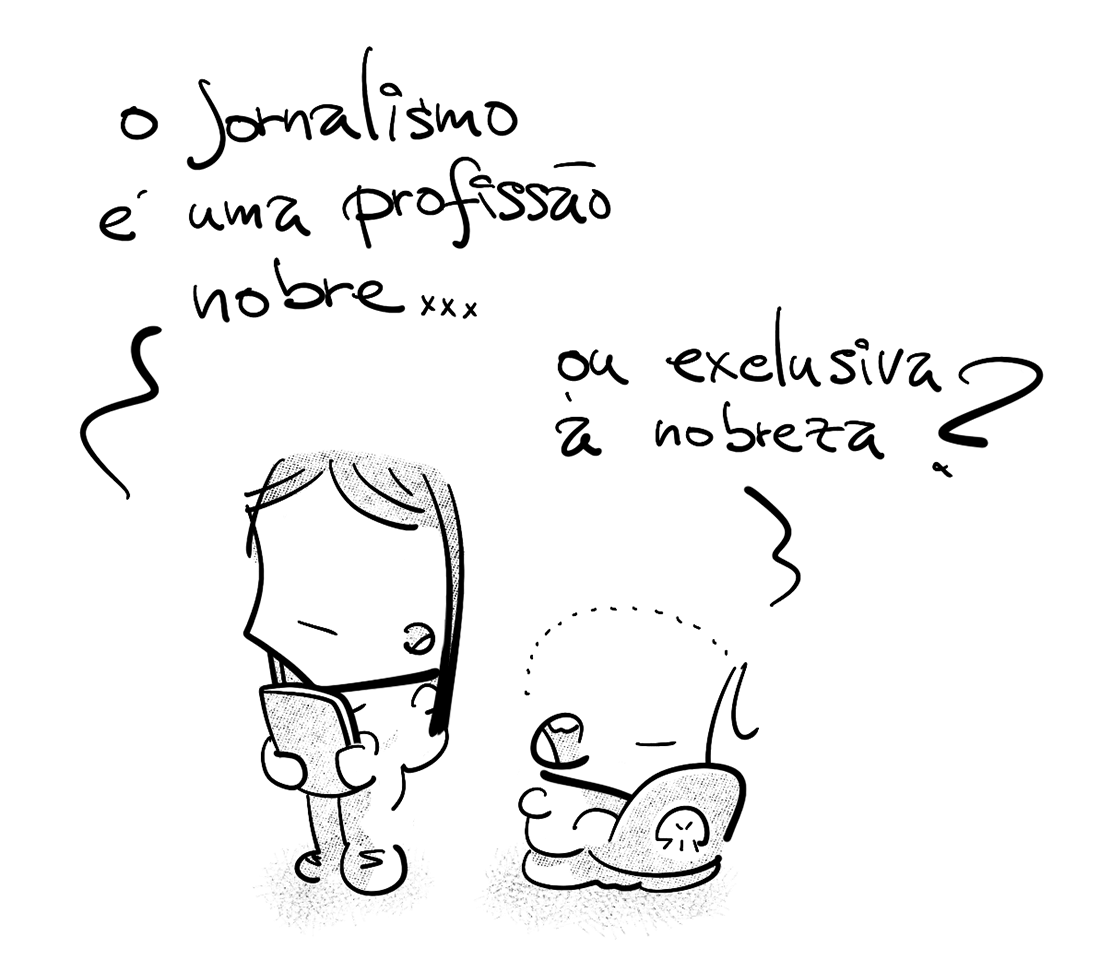 o jornalismo
é uma profissão
nobre...
ou exclusiva
à nobreza?